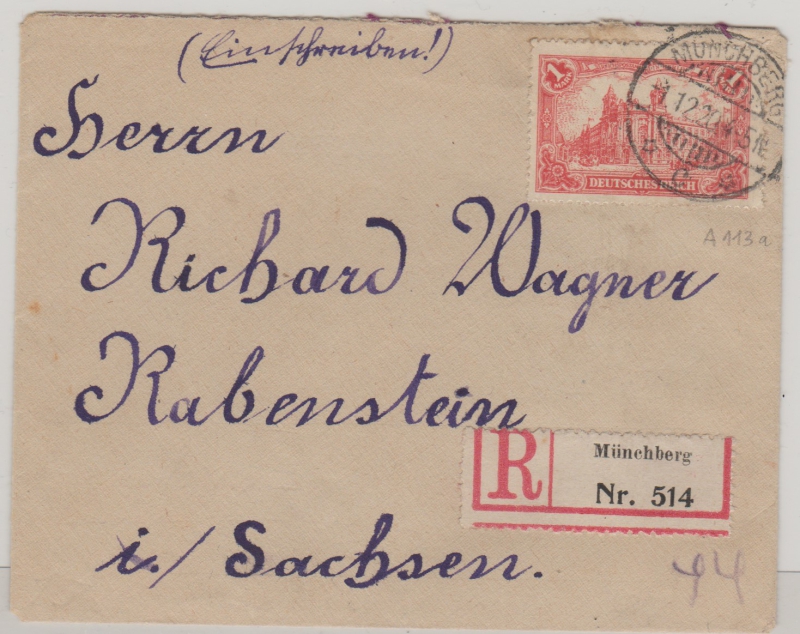 (Einschreiben!)
1 MARK 1
DEUTSCHES REICH
MÜNCHBERG
1.12.20
Herrn
A 113a
Richard Wagner
Rabenstein
R Münchberg
Nr. 514
i./ Sachsen.